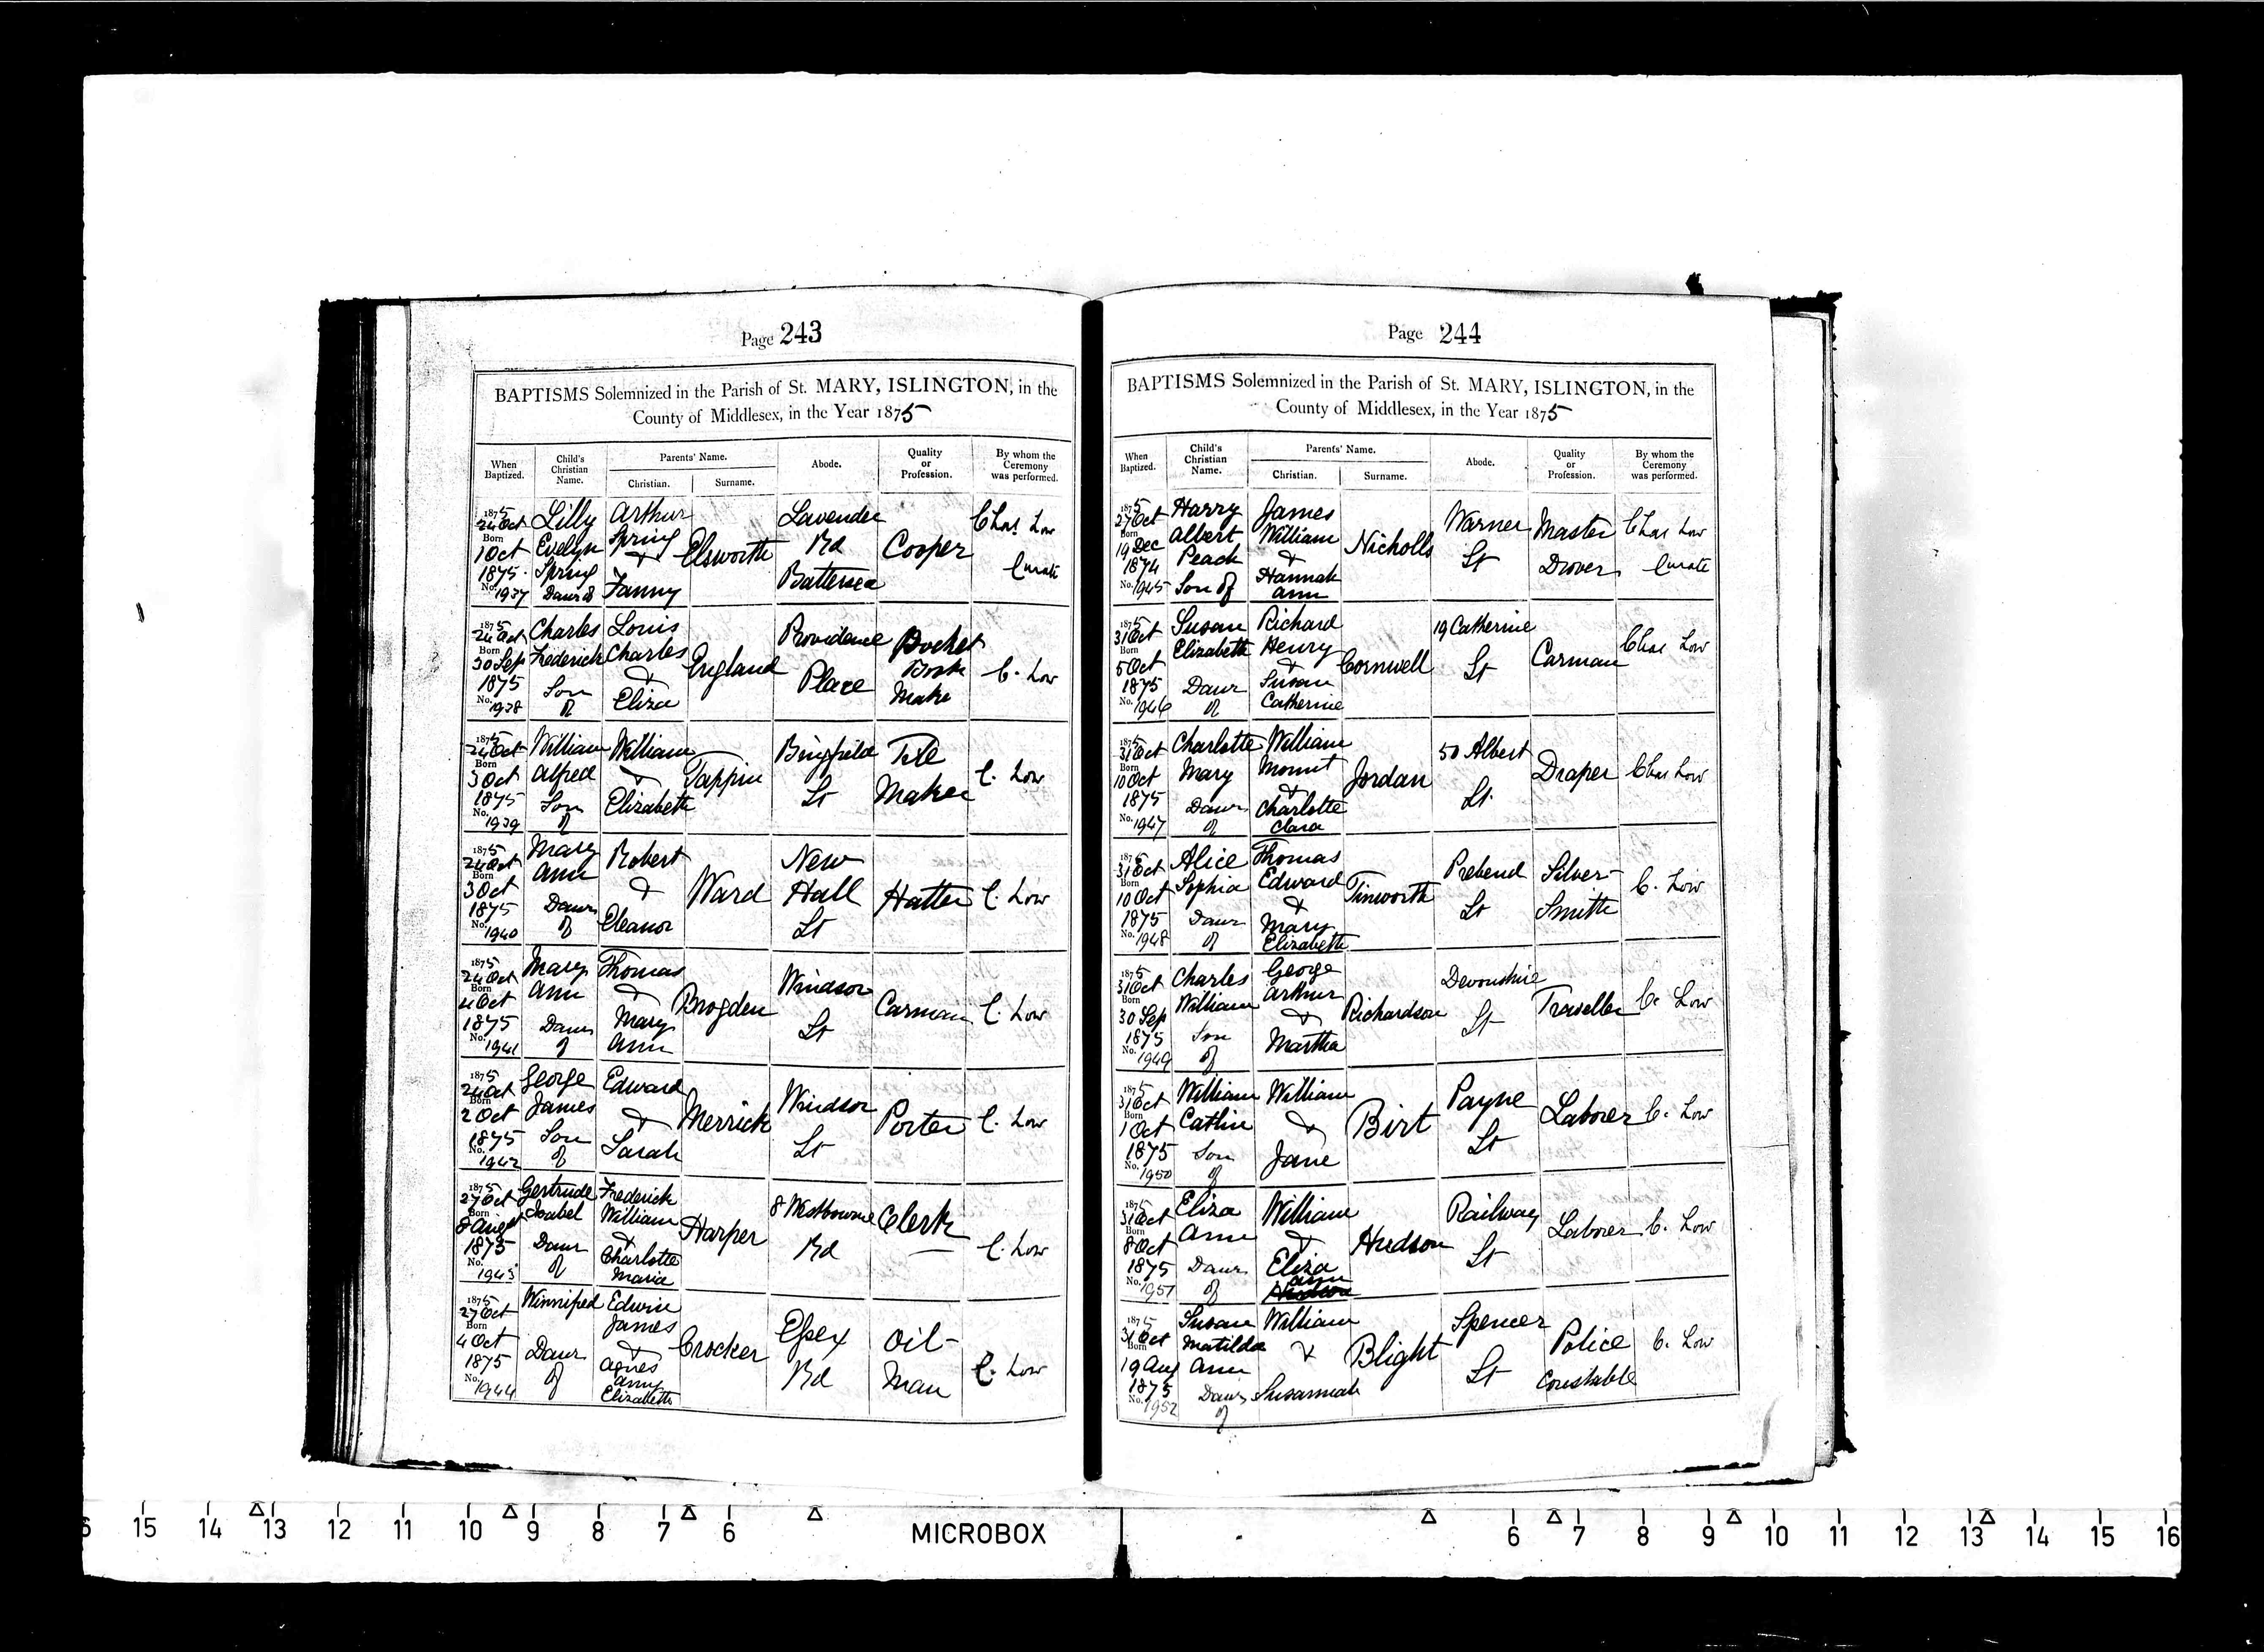 Page 243
BAPTISMS Solemnized in the Parish of St. MARY, ISLINGTON, in the
County of Middlesex, in the Year 1875
When Baptized. Child's Christian Name. Parents' Name. Christian. Surname. Abode. Quality or Profession. By whom the Ceremony was performed.
1875 24 Oct Born 1 Oct 1875 No. 1937 Lilly Evelyn Spring Daur of Arthur Spring & Fanny Elsworth Lavender Rd Battersea Cooper Chas. Low Curate
1875 24 Oct Born 30 Sep 1875 No. 1938 Charles Frederick Son of Louis Charles & Eliza England Providence Place Pocket Book Maker C. Low
1875 24 Oct Born 3 Oct 1875 No. 1939 William Alfred Son of William & Elizabeth Tappin Bingfield St Tile Maker C. Low
1875 24 Oct Born 3 Oct 1875 No. 1940 Mary Ann Daur of Robert & Eleanor Ward New Hall St Hatter C. Low
1875 24 Oct Born 4 Oct 1875 No. 1941 Mary Ann Daur of Thomas & Mary Ann Brogden Windsor St Carman C. Low
1875 24 Oct Born 2 Oct 1875 No. 1942 George James Son of Edward & Sarah Merrick Windsor St Porter C. Low
1875 27 Oct Born 8 Augst 1875 No. 1943 Gertrude Isabel Daur of Frederick William & Charlotte Maria Harper 8 Westbourne Rd Clerk C. Low
1875 27 Oct Born 4 Oct 1875 No. 1944 Winnifred Daur of Edwin James & Agnes Amy Elizabeth Crocker Essex Rd Oil-Man C. Low
Page 244
BAPTISMS Solemnized in the Parish of St. MARY, ISLINGTON, in the
County of Middlesex, in the Year 1875
When Baptized. Child's Christian Name. Parents' Name. Christian. Surname. Abode. Quality or Profession. By whom the Ceremony was performed.
1875 27 Oct Born 19 Dec 1874 No. 1945 Harry Albert Peach Son of James William & Hannah Ann Nicholls Warner St Master Drover Chas Low Curate
1875 31 Oct Born 5 Oct 1875 No. 1946 Susan Elizabeth Daur of Richard Henry & Susan Catherine Cornwell 19 Catherine St Carman Chas Low
1875 31 Oct Born 10 Oct 1875 No. 1947 Charlotte Mary Daur of William Mount & Charlotte Clara Jordan 50 Albert St. Draper Chas Low
1875 31 Oct Born 10 Oct 1875 No. 1948 Alice Sophia Daur of Thomas Edward & Mary Elizabeth Tinworth Prebend St Silver-Smith C. Low
1875 31 Oct Born 30 Sep 1875 No. 1949 Charles William Son of George Arthur & Martha Richardson Devonshire St Traveller C. Low
1875 31 Oct Born 1 Oct 1875 No. 1950 William Catlin Son of William & Jane Birt Payne St Laborer C. Low
1875 31 Oct Born 8 Oct 1875 No. 1951 Eliza Ann Daur of William & Eliza Ann Hudson Railway St Laborer C. Low
1875 31 Oct Born 19 Aug 1875 No. 1952 Susan Matilda Ann Daur of William & Susannah Blight Spencer St Police Constable C. Low
15 14 13 12 11 10 9 8 7 6 MICROBOX 6 7 8 9 10 11 12 13 14 15 16